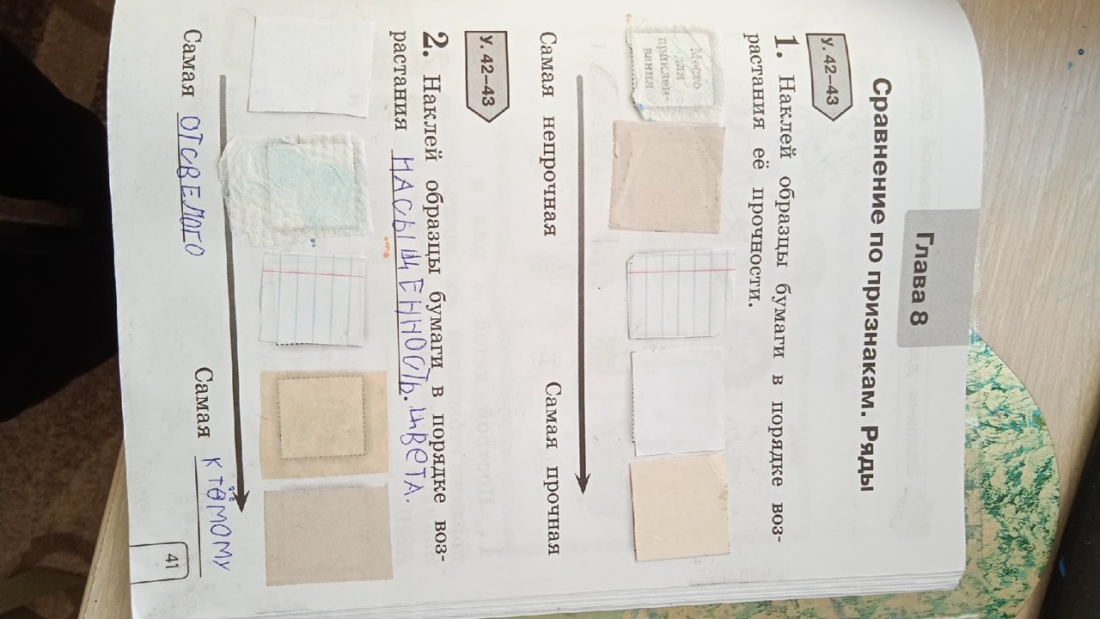 Глава 8
Сравнение по признакам. Ряды
У. 42–43
1. Наклей образцы бумаги в порядке воз-
растания её прочности.
Место
для
приклеи-
вания
Самая непрочная
Самая прочная
У. 42–43
2. Наклей образцы бумаги в порядке воз-
растания НАСЫЩЕННОСТЬ. ЦВЕТА.
Самая ОТСВЕЛОГО
Самая К ТӨМОМУ
41